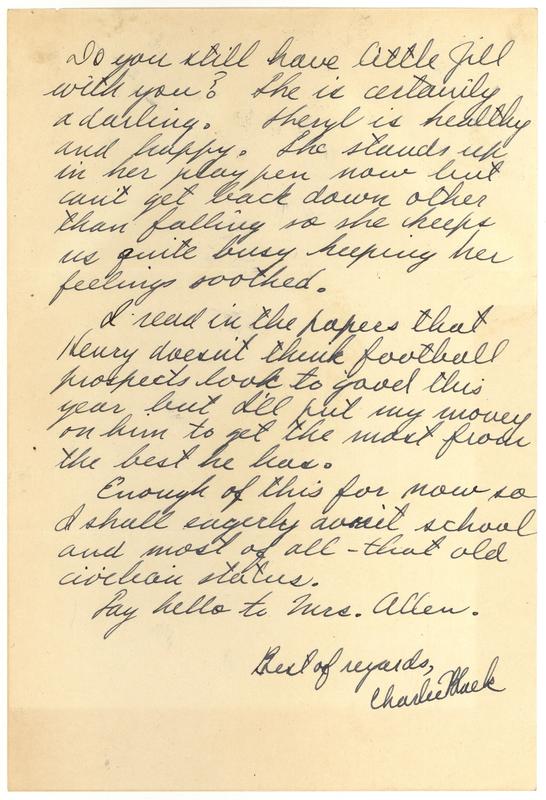 Do you still have little Jill
with you? She is certainly
a darling. Sheryl is healthy
and happy. She stands up
in her play pen now but
can't get back down other
than falling so she keeps
us quite busy keeping her
feelings soothed.
I read in the papers that
Henry doesn't think football
prospects look to good this
year but I'll put my money
on him to get the most from
the best he has.
Enough of this for now so
I shall eagerly await school
and most of all - that old
civilian status.
Say hello to Mrs. Allen.
Best of regards,
Charlie Black